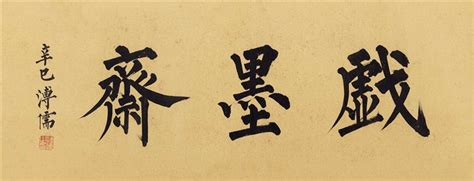 戯墨齋
辛巳溥儒